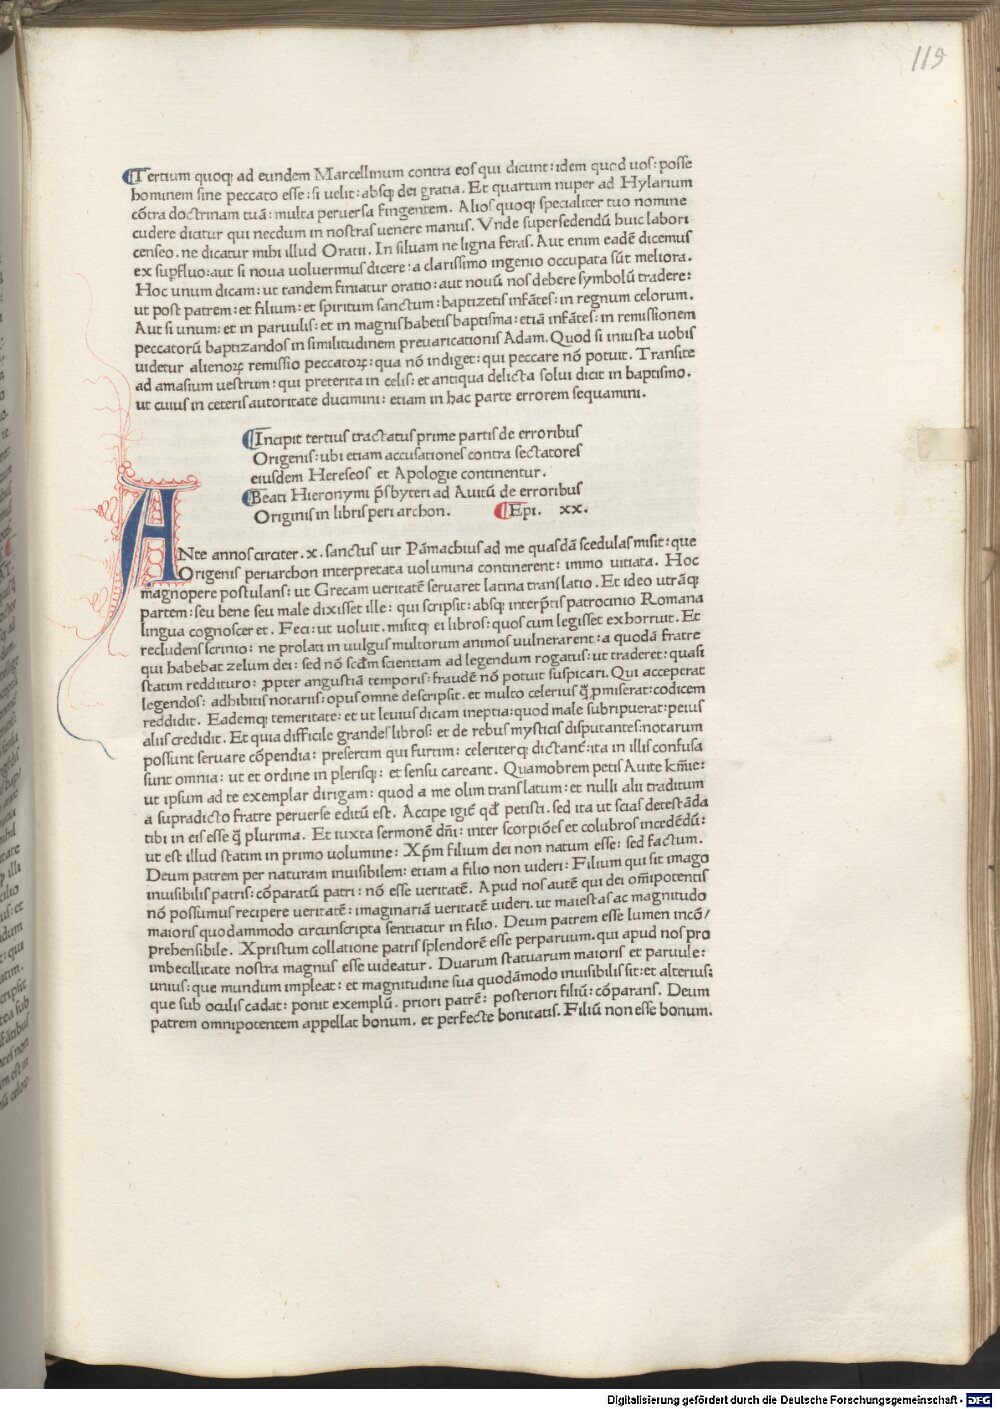 119
Tertium quoq; ad eundem Marcellinum contra eos qui dicunt: idem quod uos: posse
hominem sine peccato esse: si uelit: absq; dei gratia. Et quartum nuper ad Hylarium
cōtra doctrinam tuā: multa peruersa fingentem. Alios quoq; specialiter tuo nomine
cudere dicitur qui necdum in nostras uenere manus. Vnde supersedendū huic labori
censeo. ne dicatur mihi illud Oratii. In siluam ne ligna feras. Aut enim eadē dicemus
ex supfluo: aut si noua uoluerimus dicere: a clarissimo ingenio occupata sūt meliora.
Hoc unum dicam: ut tandem finiatur oratio: aut nouū nos debere symbolū tradere:
ut post patrem: et filium: et spiritum sanctum: baptizetis infātes: in regnum celorum.
Aut si unum: et in paruulis: et in magnis habetis baptisma: etiā infātes: in remissionem
peccatorū baptizandos in similitudinem preuaricationis Adam. Quod si iniusta uobis
uidetur alienoꝝ remissio peccatoꝝ: qua nō indiget: qui peccare nō potuit. Transite
ad amasium uestrum: qui preterita in celis: et antiqua delicta solui dicit in baptismo.
ut cuius in ceteris autoritate ducimini: etiam in hac parte errorem sequamini.
Incipit tertius tractatus prime partis de erroribus
Origenis: ubi etiam accusationes contra sectatores
eiusdem Hereseos et Apologie continentur.
Beati Hieronymi p̄sbyteri ad Auitū de erroribus
Originis in libris peri archon. Epi. xx.
ANte annos circiter .x. sanctus uir Pāmachius ad me quasdā scedulas misit: que
Origenis periarchon interpretata uolumina continerent: immo uitiata. Hoc
magnopere postulans: ut Grecam ueritatē seruaret latina translatio. Et ideo utrāq;
partem: seu bene seu male dixisset ille: qui scripsit: absq; interp̄tis patrocinio Romana
lingua cognosceret. Feci: ut uoluit. misitq; ei libros: quos cum legisset exhorruit. Et
recludens scrinio: ne prolati in uulgus multorum animos uulnerarent: a quodā fratre
qui habebat zelum dei: sed nō scd̄m scientiam ad legendum rogatus: ut traderet: quasi
statim reddituro: ꝓpter angustiā temporis: fraudē nō potuit suspicari. Qui acceperat
legendos: adhibitis notariis: opus omne descripsit. et multo celerius q̄ ꝓmiserat: codicem
reddidit. Eademq; temeritate: et ut leuius dicam ineptia: quod male subripuerat: peius
aliis credidit. Et quia difficile grandes libros: et de rebus mysticis disputantes: notarum
possunt seruare cōpendia: presertim qui furtim: celeriterq; dictant᷑: ita in illis confusa
sunt omnia: ut et ordine in plerisq;: et sensu careant. Quamobrem petis Auite km̄e:
ut ipsum ad te exemplar dirigam: quod a me olim translatum: et nulli alii traditum
a supradicto fratre peruerse editū est. Accipe igit᷑ qd̄ petisti. sed ita ut scias detestāda
tibi in eis esse q̄ plurima. Et iuxta sermonē dn̄i: inter scorpiōes et colubros incedēdū:
ut est illud statim in primo uolumine: Xp̄m filium dei non natum esse: sed factum.
Deum patrem per naturam inuisibilem: etiam a filio non uideri: Filium qui sit imago
inuisibilis patris: cōparatū patri: nō esse ueritatē. Apud nos autē qui dei om̄ipotentis
nō possumus recipere ueritatē: imaginariā ueritatē uideri. ut maiestas ac magnitudo
maioris quodammodo circunscripta sentiatur in filio. Deum patrem esse lumen incō/
prehensibile. Xpristum collatione patris splendorē esse perparuum. qui apud nos pro
imbecillitate nostra magnus esse uideatur. Duarum statuarum maioris et paruule:
unius: que mundum impleat: et magnitudine sua quodāmodo inuisibilis sit: et alterius:
que sub oculis cadat: ponit exemplū. priori patrē: posteriori filiū: cōparans. Deum
patrem omnipotentem appellat bonum. et perfecte bonitatis. Filiū non esse bonum.
Digitalisierung gefördert durch die Deutsche Forschungsgemeinschaft - DFG